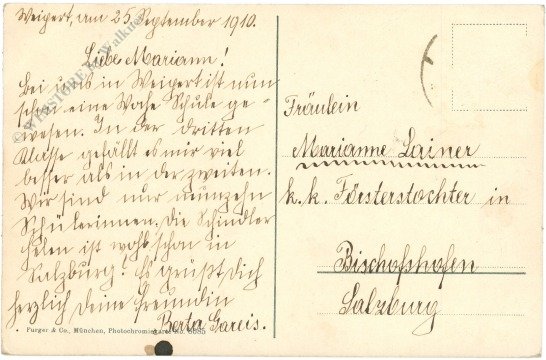 Weipert, am 25. September 1910.
Liebe Mariann!
Bei uns in Weipert ist nun
schon eine Woche Schule ge-
wesen. In der dritten
Klasse gefällt es mir viel
besser als in der zweiten.
Wir sind nur neunzehn
Schülerinnen. Die Schindler
Helen ist wohl schon in
Salzburg! Es grüßt Dich
herzlich deine Freundin
Berta Gareis.
Purger & Co., München, Photochromiekarte No.
Fräulein
Marianne Lainer
k. k. Försterstochter in
Bischofshofen
Salzburg